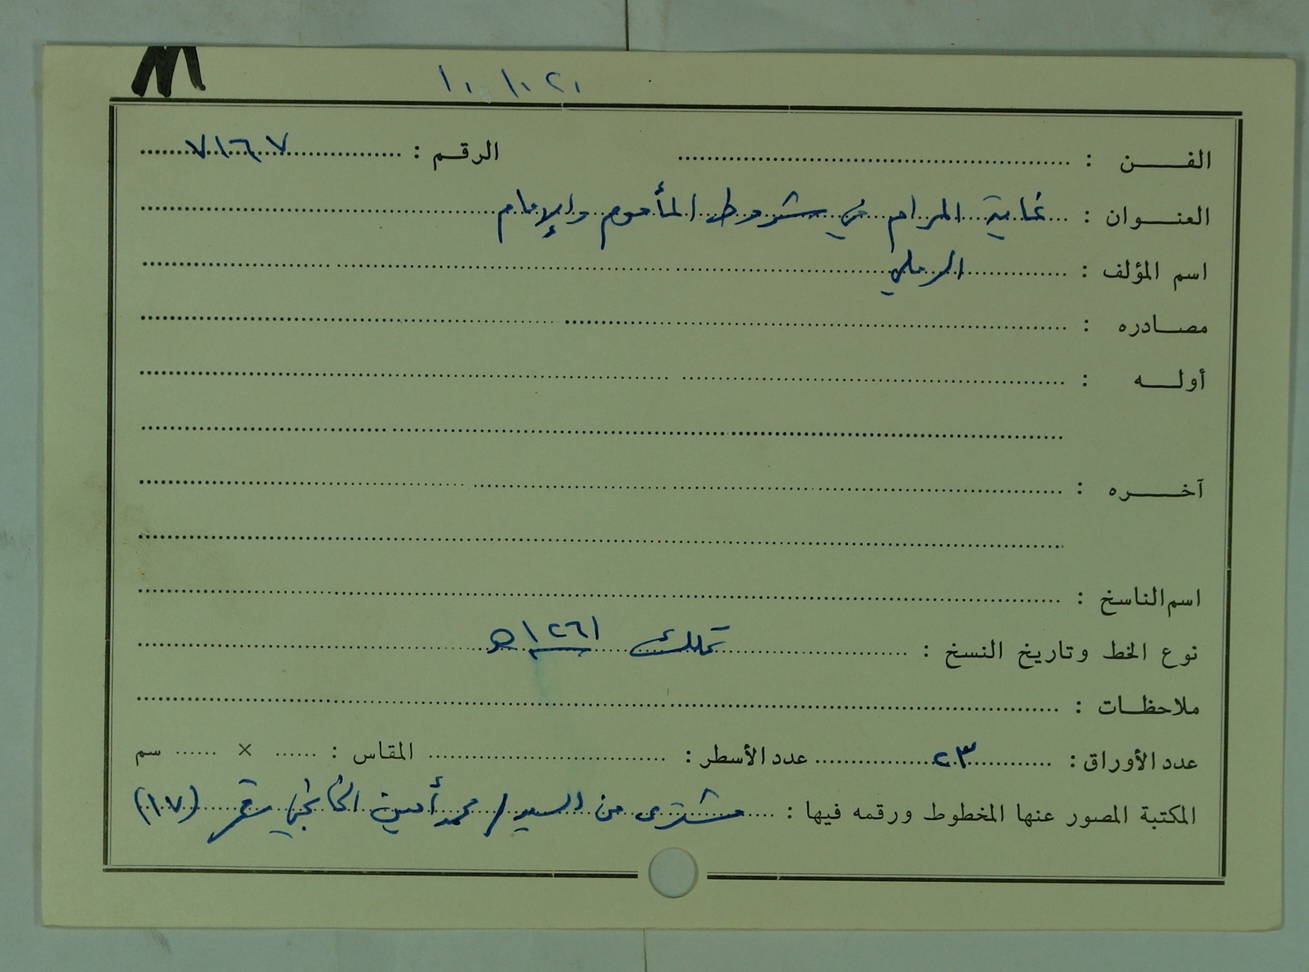 ١٠١٠٢١
الفن : الرقم : ٧١٦٧
العنوان : غاية المرام في شروط المأموم والإمام
اسم المؤلف : الرملي
مصادره :
أوله :
آخره :
اسم الناسخ :
نوع الخط وتاريخ النسخ : تملك ١٢٦١ هـ
ملاحظات :
عدد الأوراق : ٢٣ عدد الأسطر : المقاس : × سم
المكتبة المصور عنها المخطوط ورقمه فيها : مشترى من السيد / محمد أمين الخانجي (١٧)